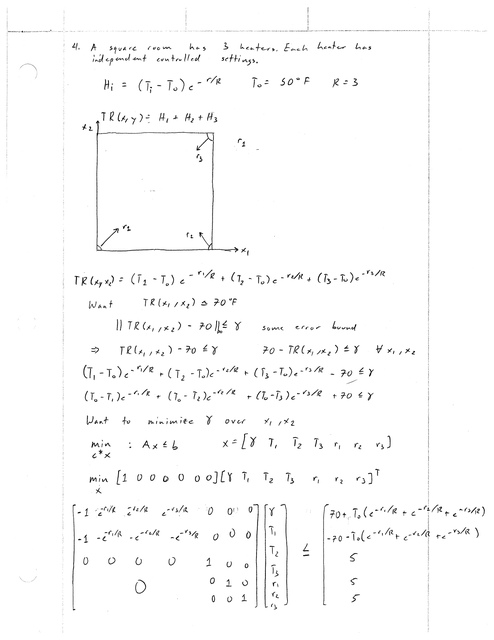 4. A square room has 3 heaters. Each heater has
independent controlled settings.
Hi = (Ti - To) e^-r/R To = 50°F R = 3
TR(x,y) = H1 + H2 + H3
x2
r3
r1
r1
r2
x1
TR(x1,x2) = (T1 - To) e^-r1/R + (T2 - To) e^-r2/R + (T3 - To) e^-r3/R
Want TR(x1,x2) ≈ 70°F
|| TR(x1,x2) - 70 ||∞ ≤ γ some error bound
⇒ TR(x1,x2) - 70 ≤ γ 70 - TR(x1,x2) ≤ γ ∀ x1,x2
(T1 - To) e^-r1/R + (T2 - To) e^-r2/R + (T3 - To) e^-r3/R - 70 ≤ γ
(To - T1) e^-r1/R + (To - T2) e^-r2/R + (To - T3) e^-r3/R + 70 ≤ γ
Want to minimize γ over x1,x2
min c*x : Ax ≤ b x = [γ T1 T2 T3 r1 r2 r3]
min x [1 0 0 0 0 0 0][γ T1 T2 T3 r1 r2 r3]^T
-1 e^-r1/R e^-r2/R e^-r3/R 0 0 0 γ 70 + To(e^-r1/R + e^-r2/R + e^-r3/R)
-1 -e^-r1/R -e^-r2/R -e^-r3/R 0 0 0 T1 -70 - To(e^-r1/R + e^-r2/R + e^-r3/R)
0 0 0 0 1 0 0 T2 ≤ 5
0 0 1 0 T3 r1 5
0 0 1 r2 r3 5